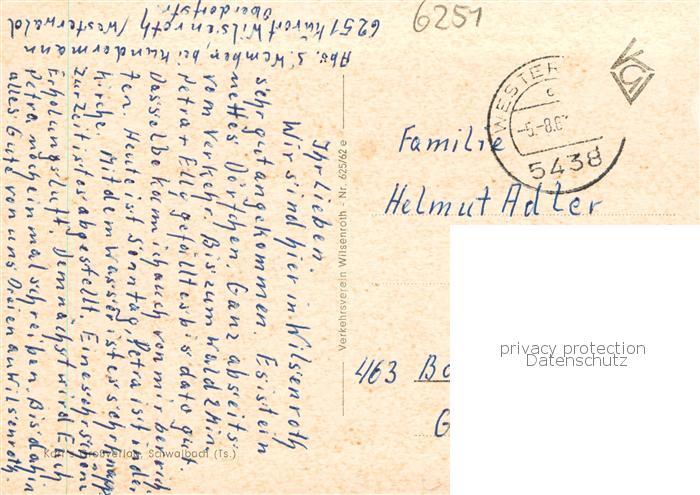 6251
Abs. S. Wember, bei Hundermann
6251 Kurort Wilsenroth/Westerwald
Oberdorfstr. 1
Ihr Lieben.
Wir sind hier in Wilsenroth
sehr gut angekommen. Es ist ein
nettes Dörfchen. Ganz abseits
vom Verkehr. Bis zum Wald 2 Min
Petra + Elly gefällt es bis dato gut.
Dasselbe kann ich auch von mir berich-
ten. Heute ist Sonntag, Petra ist in der
Kirche. Mit dem Wasser ist es sehr knapp
zur Zeit ist es abgestellt. Eine sehr schöne
Erholungsluft. Demnächst wird Euch
Petra noch einmal schreiben. Bis dahin
alles Gute von uns Dreien au Wilsenroth.
Verkehrsverein Wilsenroth - Nr. 625/62 e
Karl's Großverlag, Schwalbach (Ts.)
WESTER
-6.-8.6
5438
Familie
Helmut Adler
463 Bo
G
privacy protection
Datenschutz